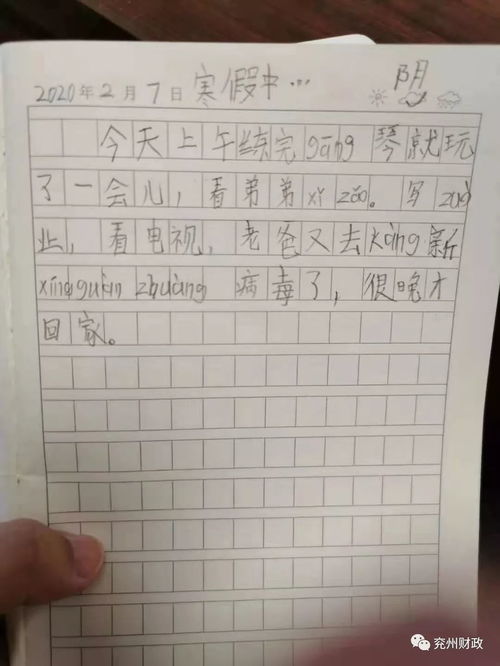 2020年2月7日 寒假中… 阴
今天上午练完gāng琴就玩
了一会儿,看弟弟xǐ zǎo。写zuò
业,看电视,老爸又去kàng新
xíngguàn zhuàng 病毒了,很晚才
回家。
兖州财政